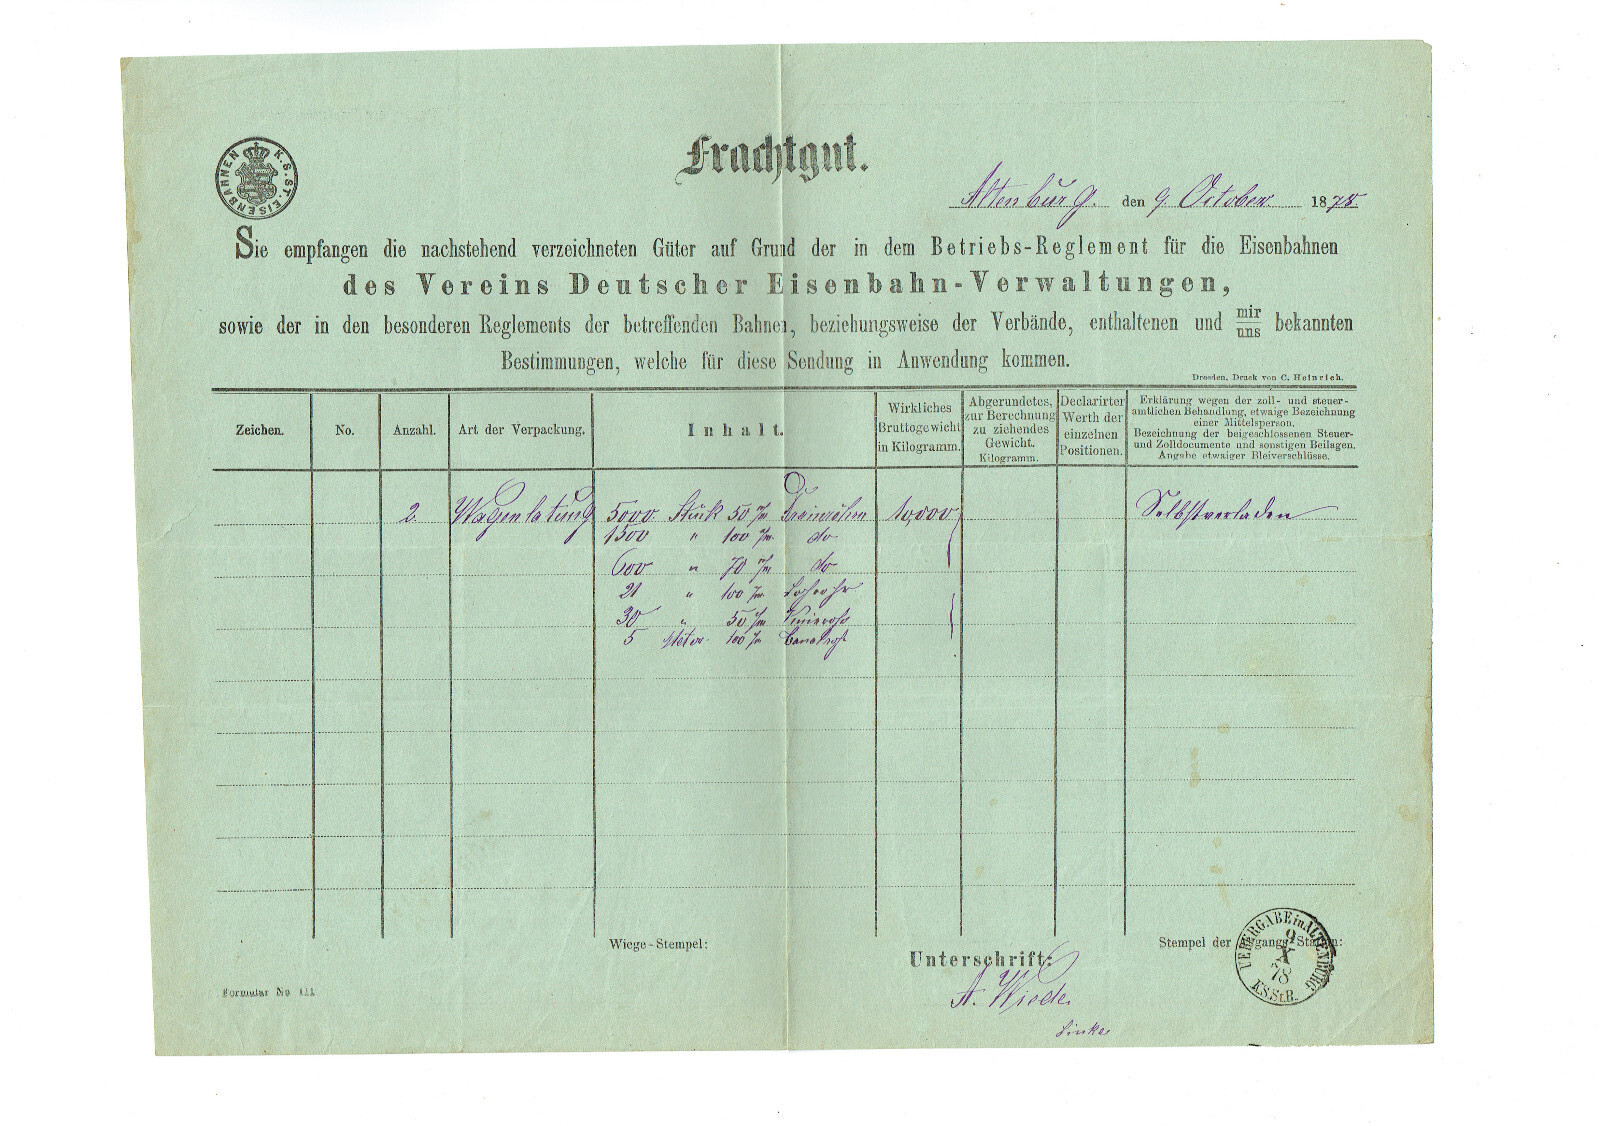 K. S. ST. EISENBAHNEN
Frachtgut.
Altenburg. den 9. October 1878
Sie empfangen die nachstehend verzeichneten Güter auf Grund der in dem Betriebs-Reglement für die Eisenbahnen
des Vereins Deutscher Eisenbahn-Verwaltungen,
sowie der in den besonderen Reglements der betreffenden Bahnen, beziehungsweise der Verbände, enthaltenen und mir/uns bekannten
Bestimmungen, welche für diese Sendung in Anwendung kommen.
Dresden, Druck von C. Heinrich.
Zeichen. No. Anzahl. Art der Verpackung. Inhalt.
Wirkliches
Bruttogewicht
in Kilogramm.
Abgerundetes,
zur Berechnung
zu ziehendes
Gewicht.
Kilogramm.
Declarirter
Werth der
einzelnen
Positionen.
Erklärung wegen der zoll- und steuer-
amtlichen Behandlung, etwaige Bezeichnung
einer Mittelsperson.
Bezeichnung der beigeschlossenen Steuer-
und Zolldocumente und sonstigen Beilagen.
Angabe etwaiger Bleiverschlüsse.
2 Wagenlatung 5000 Stück 50 m/m Drainröhren 10,000 Selbstverladen
1500 " 100 m/m do
600 " 70 m/m do
21 " 100 m/m
30 " 50 m/m
5 Meter 100 m/m
Wiege-Stempel:
Unterschrift:
Stempel der Abgangs-Station:
UEBERGABE in ALTENBURG
9
X
78
K.S.St.B.
A. Wiede.
Linke
Formular No